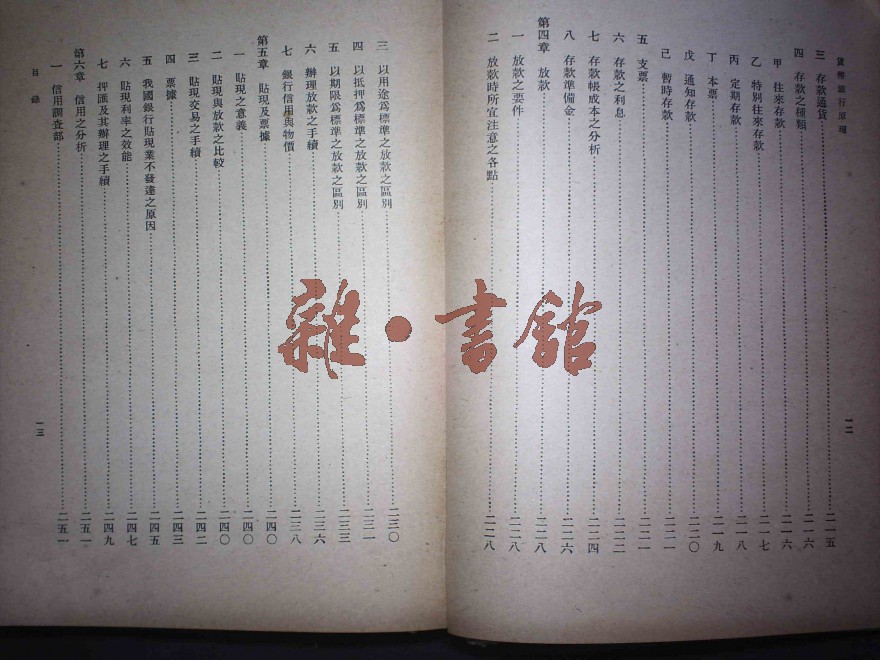 貨幣銀行原理
一二
三 存款通貨……二一五
四 存款之種類……二一六
甲 往來存款……二一六
乙 特別往來存款……二一七
丙 定期存款……二一八
丁 本票……二一九
戊 通知存款……二二〇
己 暫時存款……二二一
五 支票……二二一
六 存款之利息……二二二
七 存款帳成本之分析……二二四
八 存款準備金……二二六
第四章 放款……二二八
一 放款之要件……二二八
二 放款時所宜注意之各點……二二八
三 以用途爲標準之放款之區別……二三〇
四 以抵押爲標準之放款之區別……二三一
五 以期限爲標準之放款之區別……二三三
六 辦理放款之手續……二三六
七 銀行信用與物價……二三八
第五章 貼現及票據……二四〇
一 貼現之意義……二四〇
二 貼現與放款之比較……二四〇
三 貼現交易之手續……二四二
四 票據……二四三
五 我國銀行貼現業不發達之原因……二四五
六 貼現利率之效能……二四七
七 押匯及其辦理之手續……二四九
第六章 信用之分析……二五一
一 信用調查部……二五一
目錄
一三
雜·書館